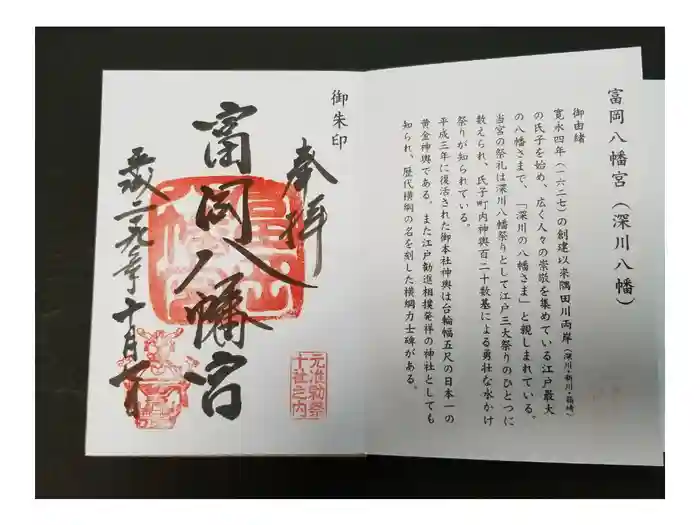 富岡八幡宮(深川八幡)
御由緒
寛永四年(一六二七)の創建以来隅田川両岸(深川・新川・箱崎)
の氏子を始め、広く人々の崇敬を集めている江戸最大
の八幡さまで、「深川の八幡さま」と親しまれている。
当宮の祭礼は深川八幡祭りとして江戸三大祭りのひとつに
数えられ、氏子町内神輿百二十数基による勇壮な水かけ
祭りが知られている。
平成三年に復活された御本社神輿は台輪幅五尺の日本一の
黄金神輿である。また江戸勧進相撲発祥の神社としても
知られ、歴代横綱の名を刻した横綱力士碑がある。
御朱印
奉拝
富岡八幡宮
平成二九年十月
元准勅祭
十社之内